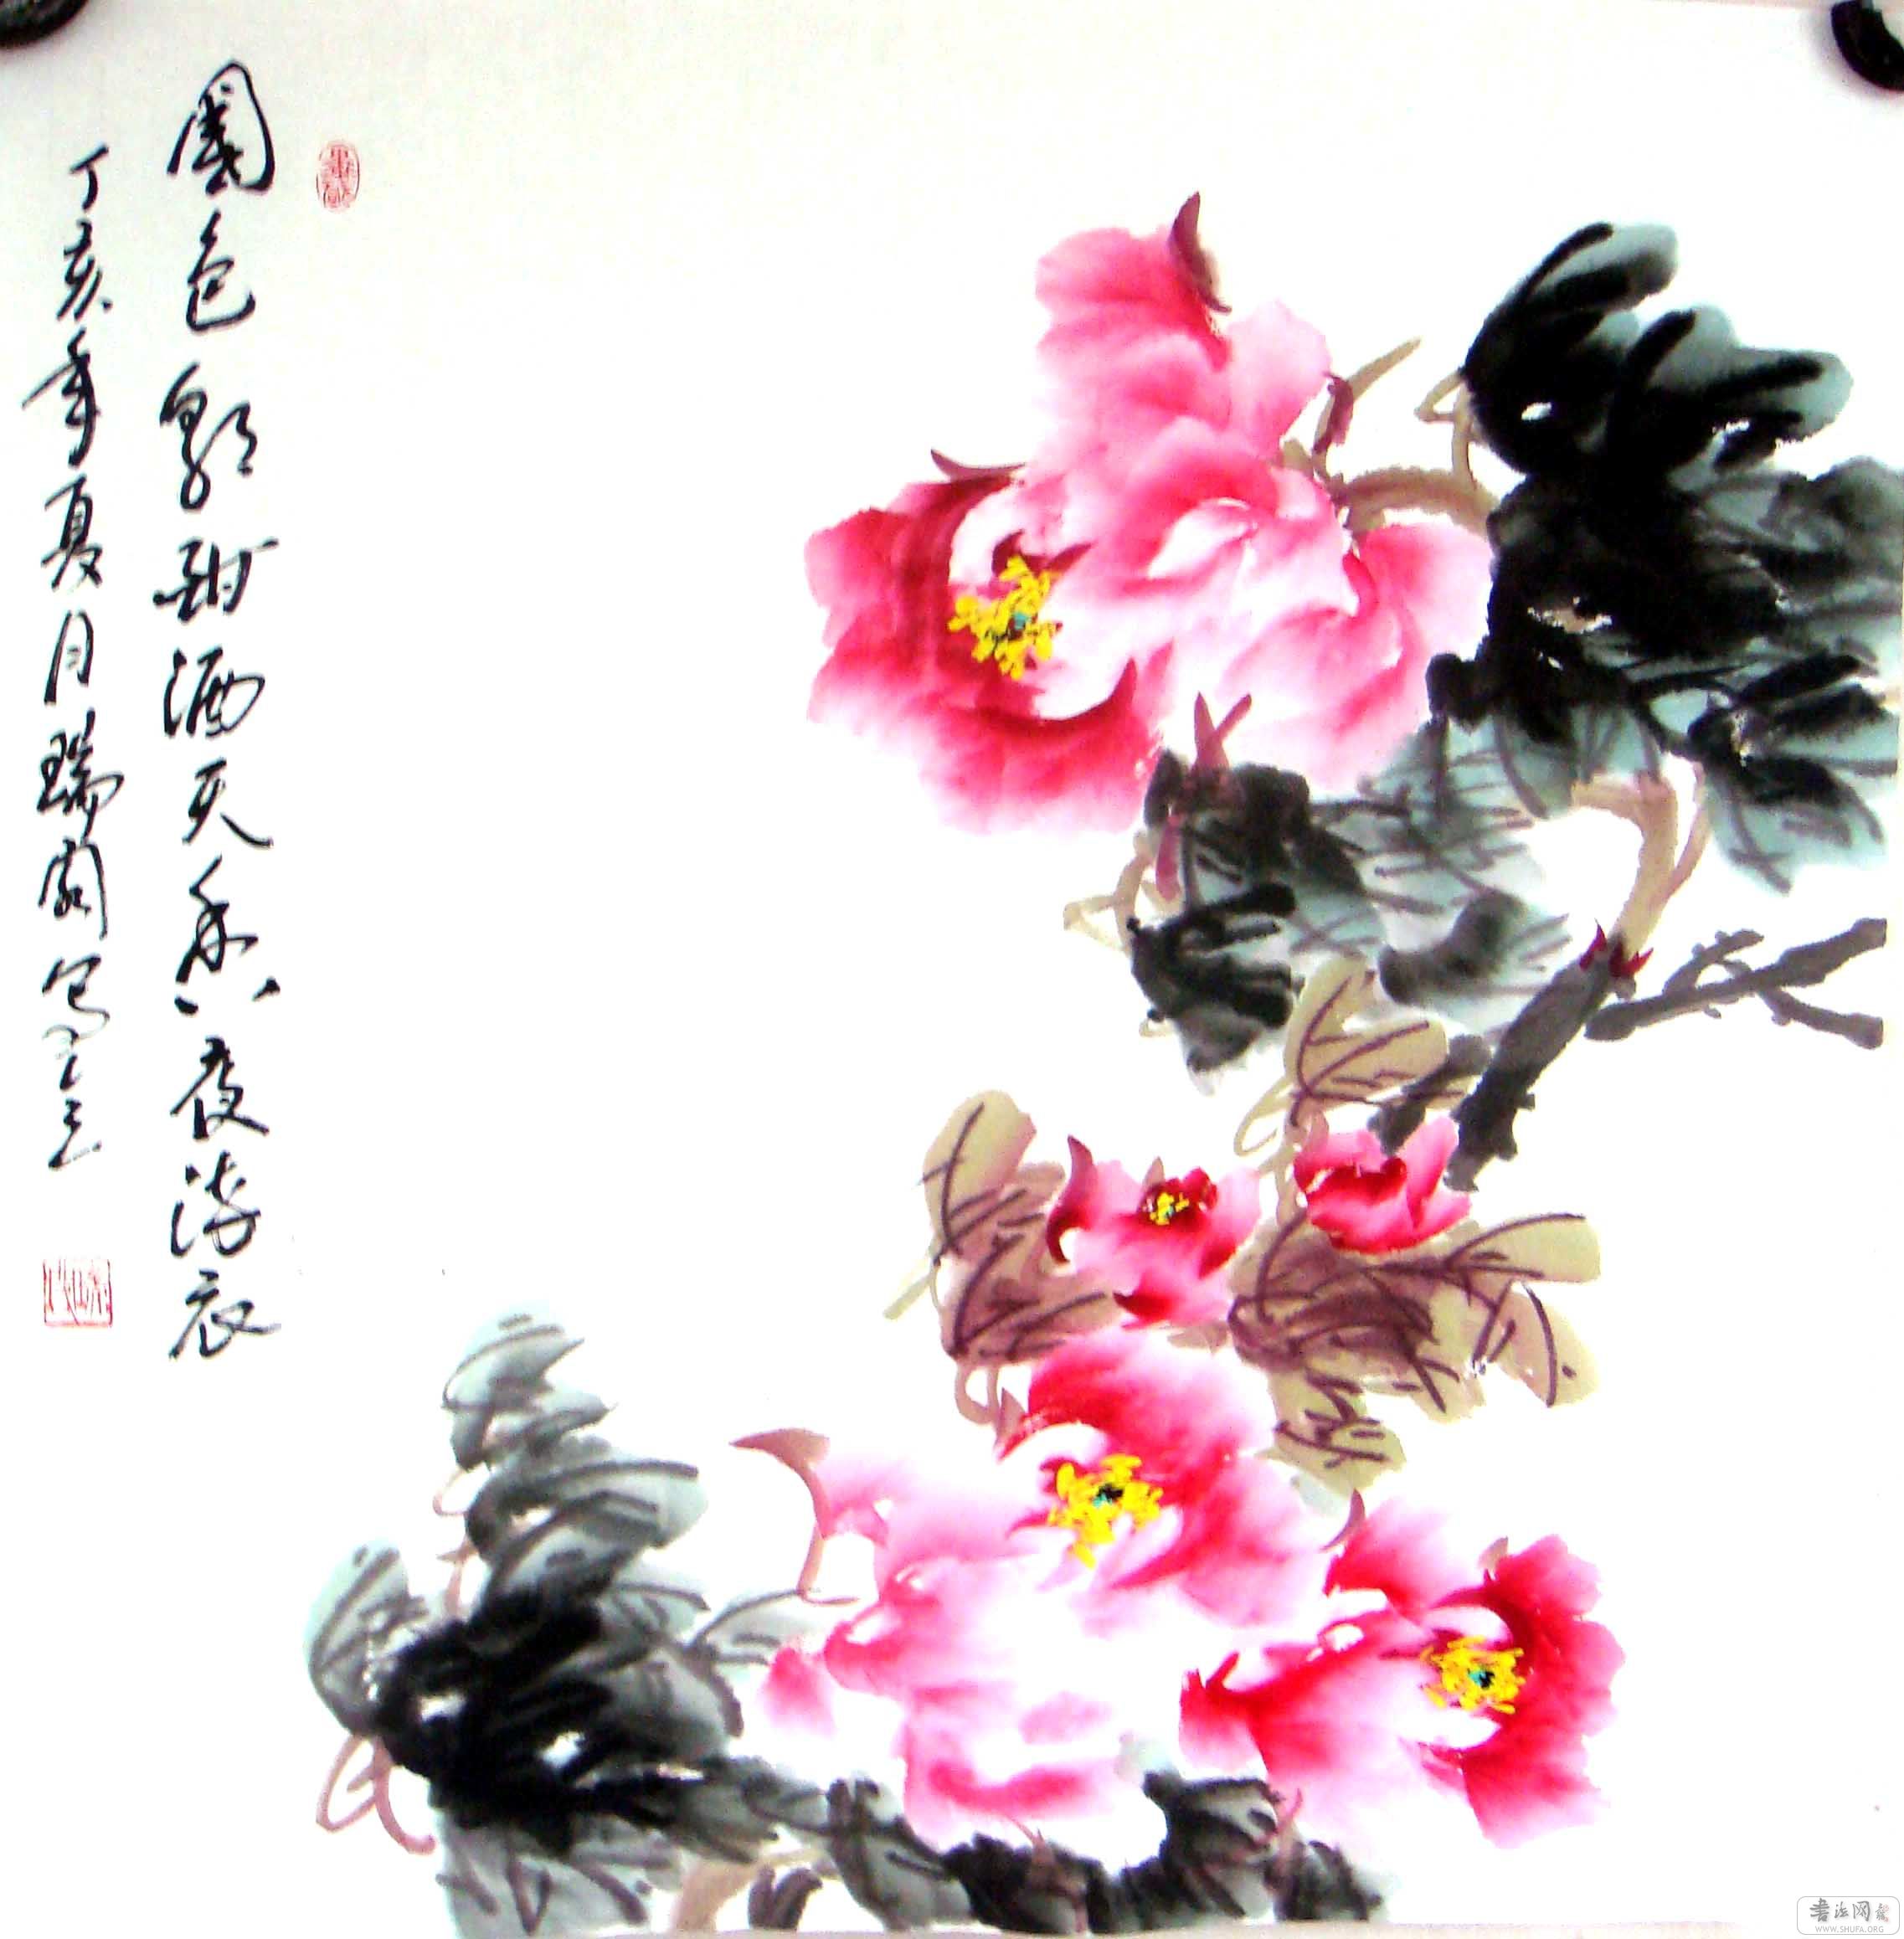 國色朝酣酒天香夜染衣
丁亥年夏月瑞閣
書法网
WWW.SHUFA.ORG